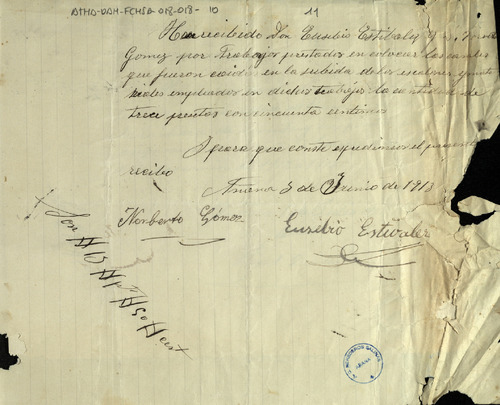 ATHA-DAH-FCHSA-018-018- 10
11
Han recibido Don Eusebio Estibalez y D.
Gomez por trabajos prestados en colocar los cantos
que fueron caidos en la subida de los escalones y mate
riales empleados en dichos trabajos la cantidad de
trece pesetas con cincuenta centimos
Y para que conste expedimos el presente
recibo
5 de Junio de 1913
Norberto Gómez
Eusebio Estivalez
Son #13# #50#